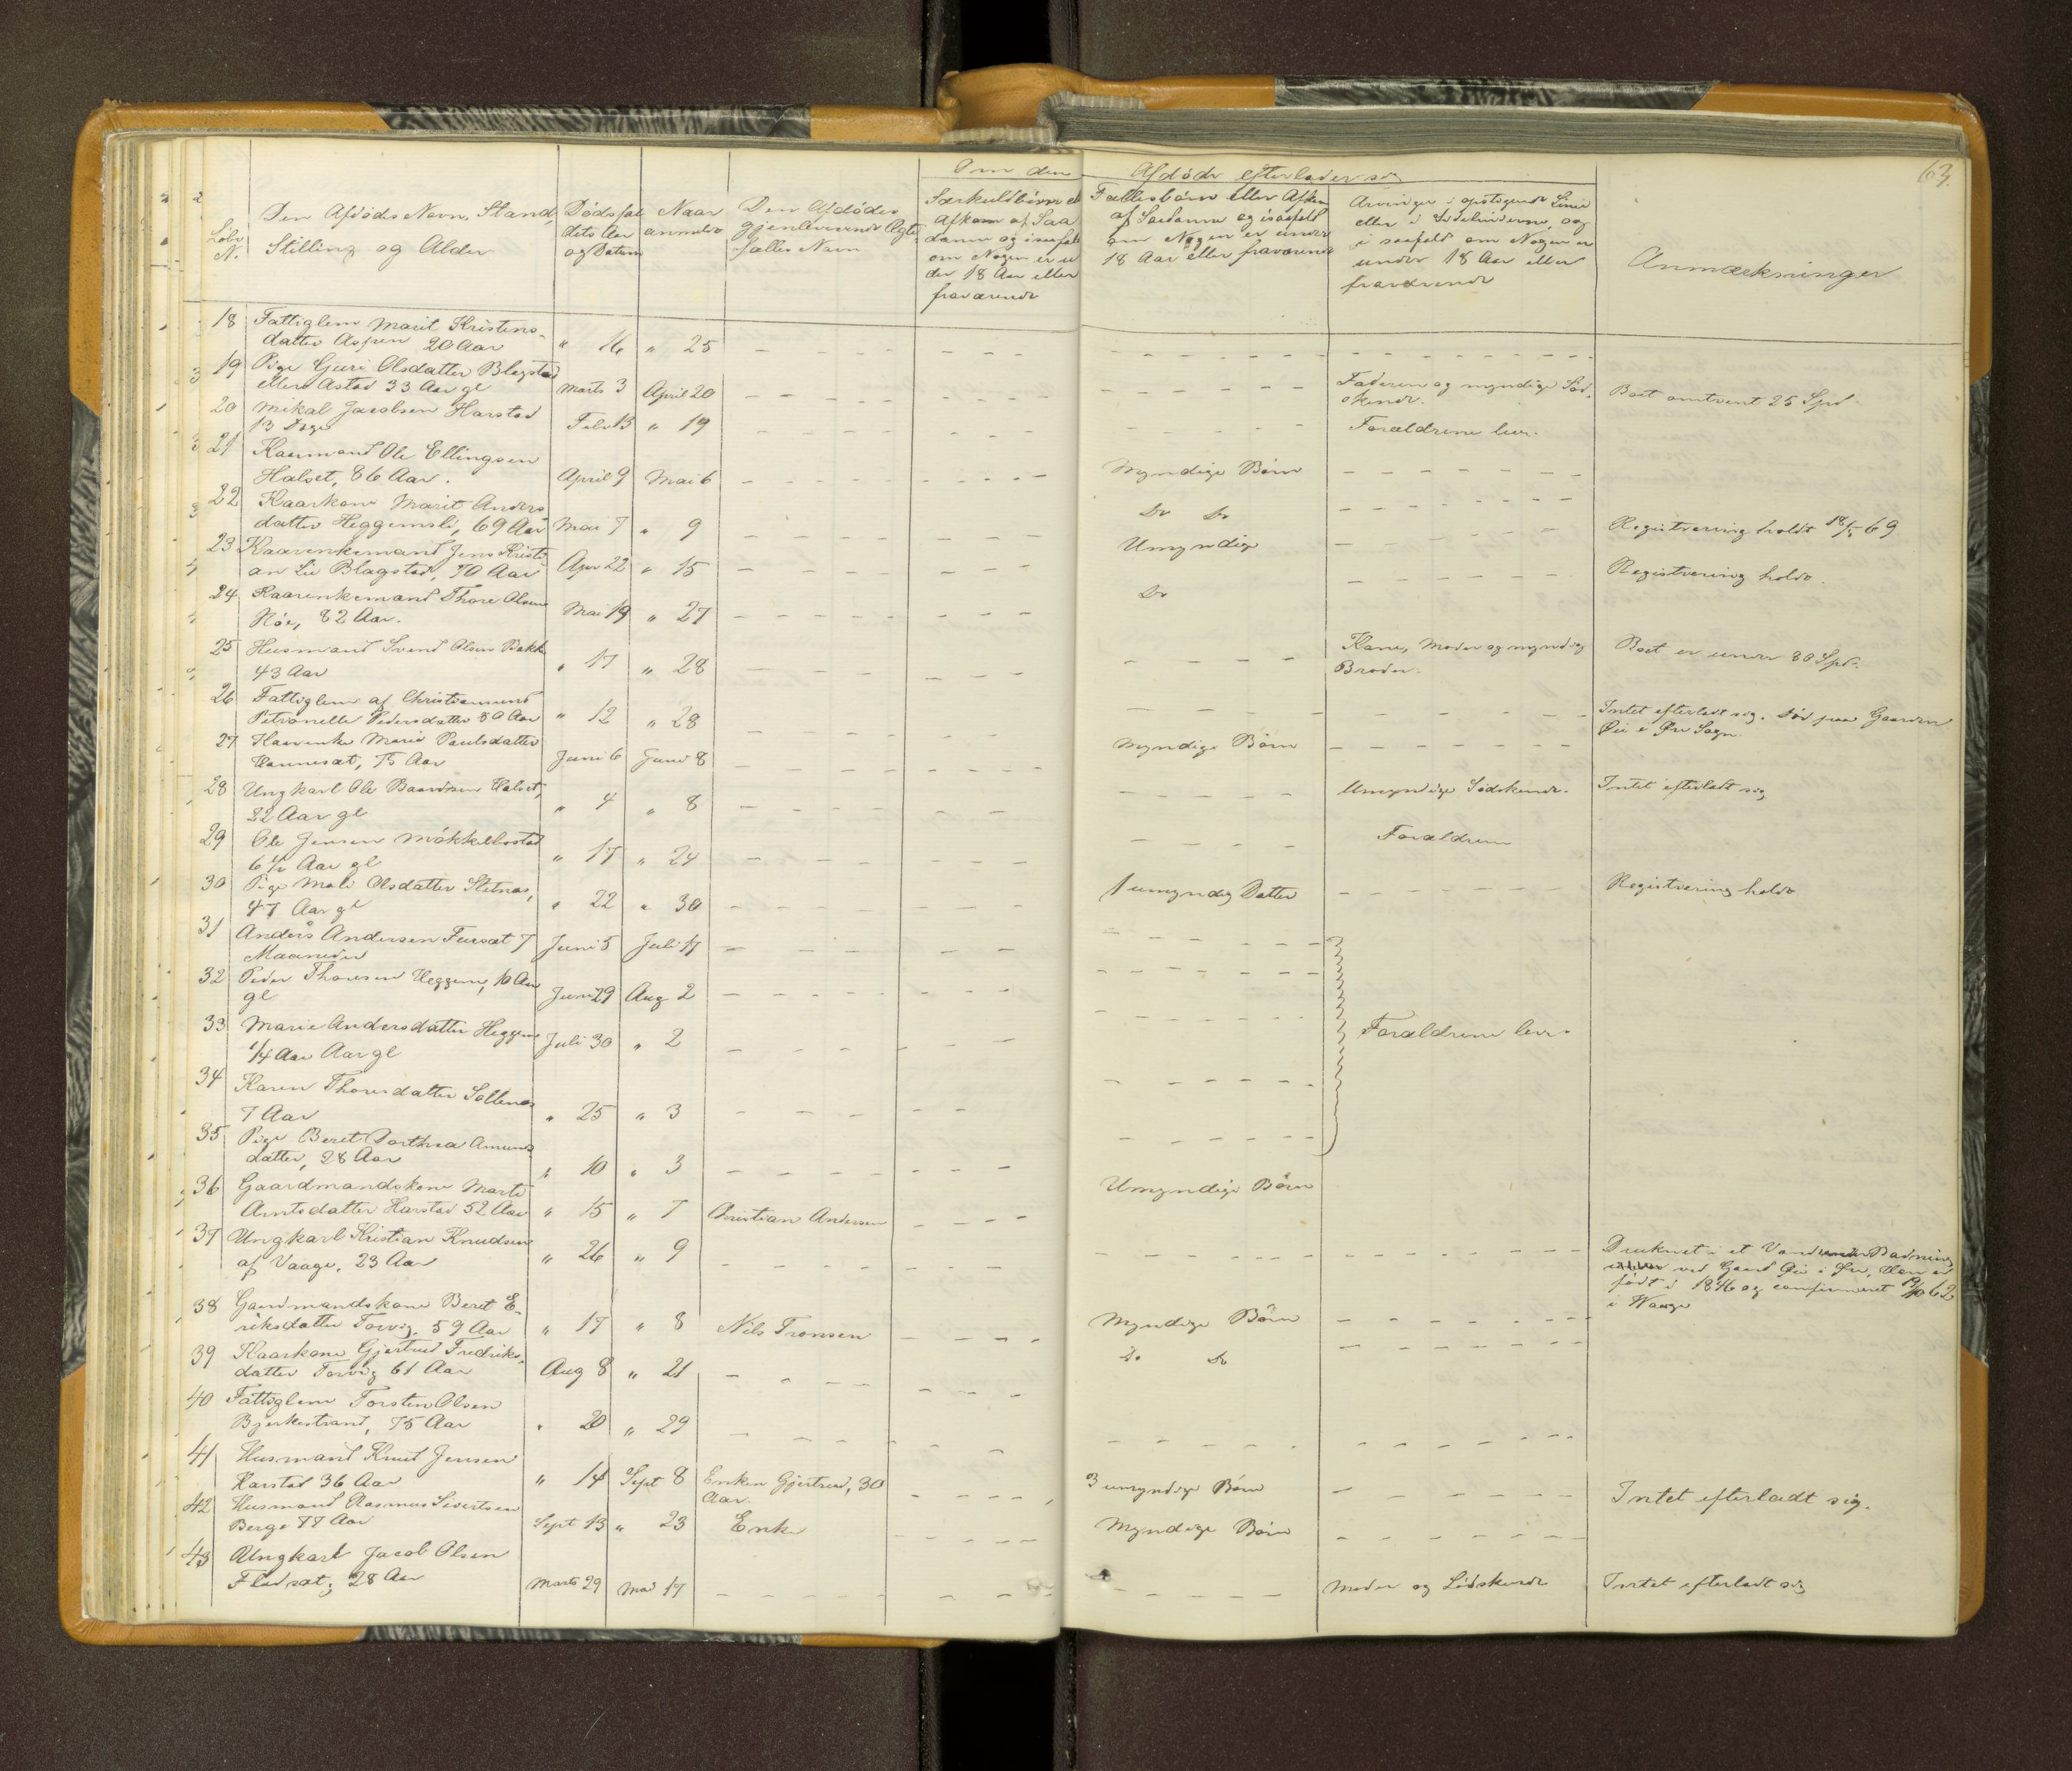 63.
Om den Afdøde efterlader sig
Løbe N.
Den Afdødes Navn, Stand,
Stilling og Alder
Dødsfal
dets Aar
og Datum
Naar
anmeldt
Den Afdødes
gjenlevende Ægte
fælles Navn
Særkuldbørn el
Afkom af Saa
danne og isaafald
om Nogen er un
der 18 Aar eller
fraværende
Fællesbørn eller Afkom
af Saadanne og isaafald
om Nogen er under
18 Aar eller fraværende
Arvinger i opstigende Linie
eller i Sidelinierne, og
i saafald om Nogen er
under 18 Aar eller
fraværende
Anmærkninger
18 Fattiglem Marit Kristens
datter Aspen 20 Aar " 16 " 25
19 Pige Guri Olsdatter Blagstad
eller Astad 33 Aar gl Marts 3 April 20 Faderen og myndige Sød
skende. Boet omtrent 25 Spd.
20 Mikal Jacobsen Harstad
13 Dage Febr 13 " 19 Forældrene lever.
21 Kaarmand Ole Ellingsen
Halset, 86 Aar. April 9 Mai 6 Myndige Børn
22 Kaarkone Marit Anders
datter Heggemsli, 69 Aar Mai 7 " 9 Do Do Registrering holdt 18/5 69
23 Kaarenkemand Jens Kristi
an Lie Blagstad, 70 Aar Apr 22 " 15 Umyndige Registrering holdt.
24 Kaarenkemand Thore Olsen
Höe, 82 Aar. Mai 19 " 27 Do
25 Husmand Svend Olsen Bakk
43 Aar " 17 " 28 Kone, Moder og myndig
Broder. Boet er under 80 Spd.
26 Fattiglem af Christiansund
Petronelle Pedersdatter 80 Aar " 12 " 28 Intet efterladt sig. Død paa Gaarden
Øie i Øre Sogn.
27 Kaarenke Marie Paulsdatter
Hannesæt, 75 Aar Juni 6 Juni 8 Myndige Børn
28 Ungkarl Ole Baardsen Halset,
22 Aar gl " 4 " 8 Umyndige Sødskende. Intet efterladt sig
29 Ole Jensen Mökkelbostad
6 1/2 Aar gl " 17 " 24 Forældrene
30 Pige Mali Olsdatter Stetnæs,
47 Aar gl " 22 " 30 1 umyndig Datter Registrering holdt
31 Anders Andersen Fursæt 7
Maaneder Juni 5 Juli 17
32 Peder Thoresen Heggem, 10 Aar
gl Juni 29 Aug 2
33 Marie Andersdatter Heggem
1/4 Aar Aar gl Juli 30 " 2 Forældrene lever.
34 Karen Thoresdatter Sollenæs
7 Aar " 25 " 3
35 Pige Beret Dorthea Amunds
datter, 28 Aar " 10 " 3
36 Gaardmandskone Marti
Arntsdatter Harstad 52 Aar " 15 " 7 Christian Andersen Umyndige Børn
37 Ungkarl Kristian Knudsen
af Vaage, 23 Aar " 26 " 9 Druknet i et Vand under Badning
ved Gaard Øie i Øre, Han er
født i 1846 og confirmeret 19/10 62
i Waage
38 Gaardmandskone Beret E-
riksdatter Torvig, 59 Aar " 17 " 8 Nils Tronsen Myndige Børn
39 Kaarkone Gjertrud Fredriks-
datter Torvig 61 Aar Aug 8 " 21 Do Do
40 Fattiglem Torsten Olsen
Bjerkestrand, 75 Aar " 20 " 29
41 Husmand Knud Jensen
Harstad 36 Aar " 14 Sept 8 Enken Gjertrud, 30
Aar. 3 umyndige Børn Intet efterladt sig.
42 Husmand Rasmus Sivertsen
Berge 77 Aar Sept 13 " 23 Enke Myndige Børn
43 Ungkarl Jacob Olsen
Fladsæt, 28 Aar Marts 29 Mai 17 Moder og Sødskende Intet efterladt sig